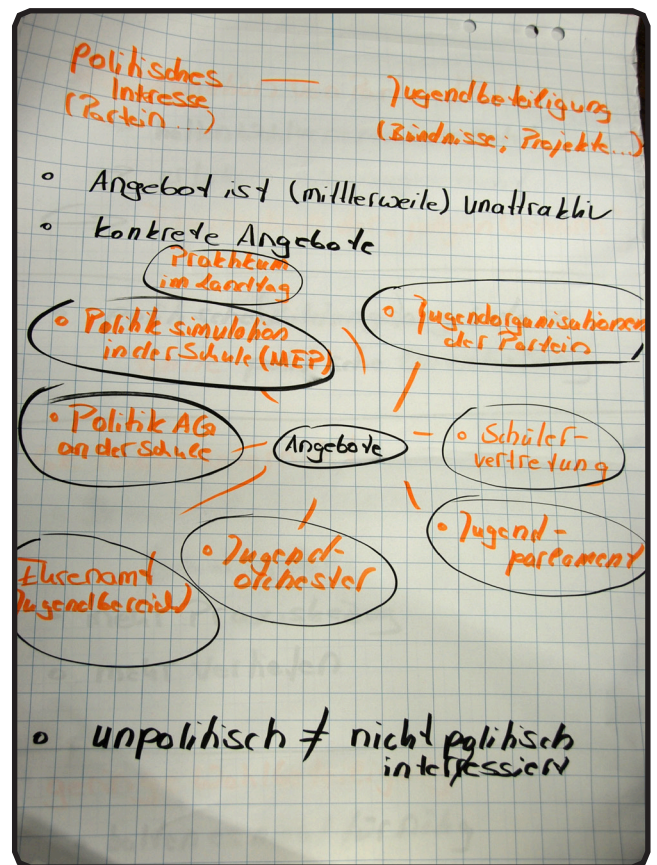 Politisches — Jugendbeteiligung
Intresse
(Partein...) (Bündnisse; Projekte...)
• Angebot ist (mittlerweile) unattraktiv
• konkrete Angebote
Praktikum
im Landtag
• Politik simulation
in der Schule (MEP)
• Jugendorganisationen
der Partein
• Politik AG
an der Schule
Angebote
• Schüler-
vertretung
• Jugend-
parlament
• Jugend-
orchester
Ehrenamt
Jugendbereich
• unpolitisch ≠ nicht politisch
interessiert